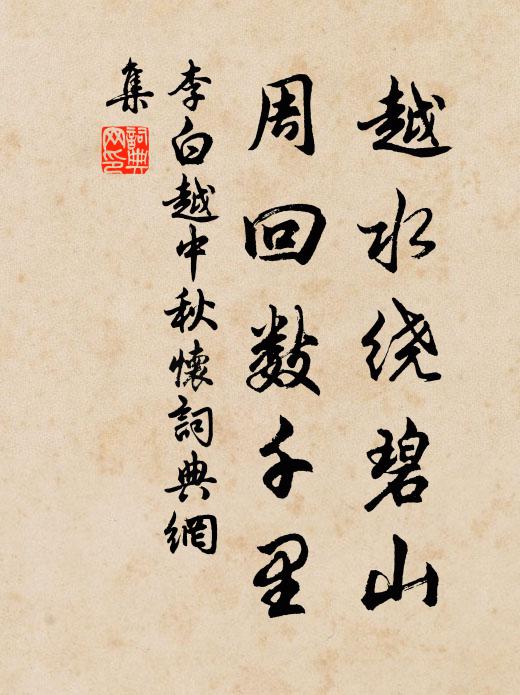 越水绕碧山
周回数千里
李白越中秋懷詞典網
集
詞典
网印